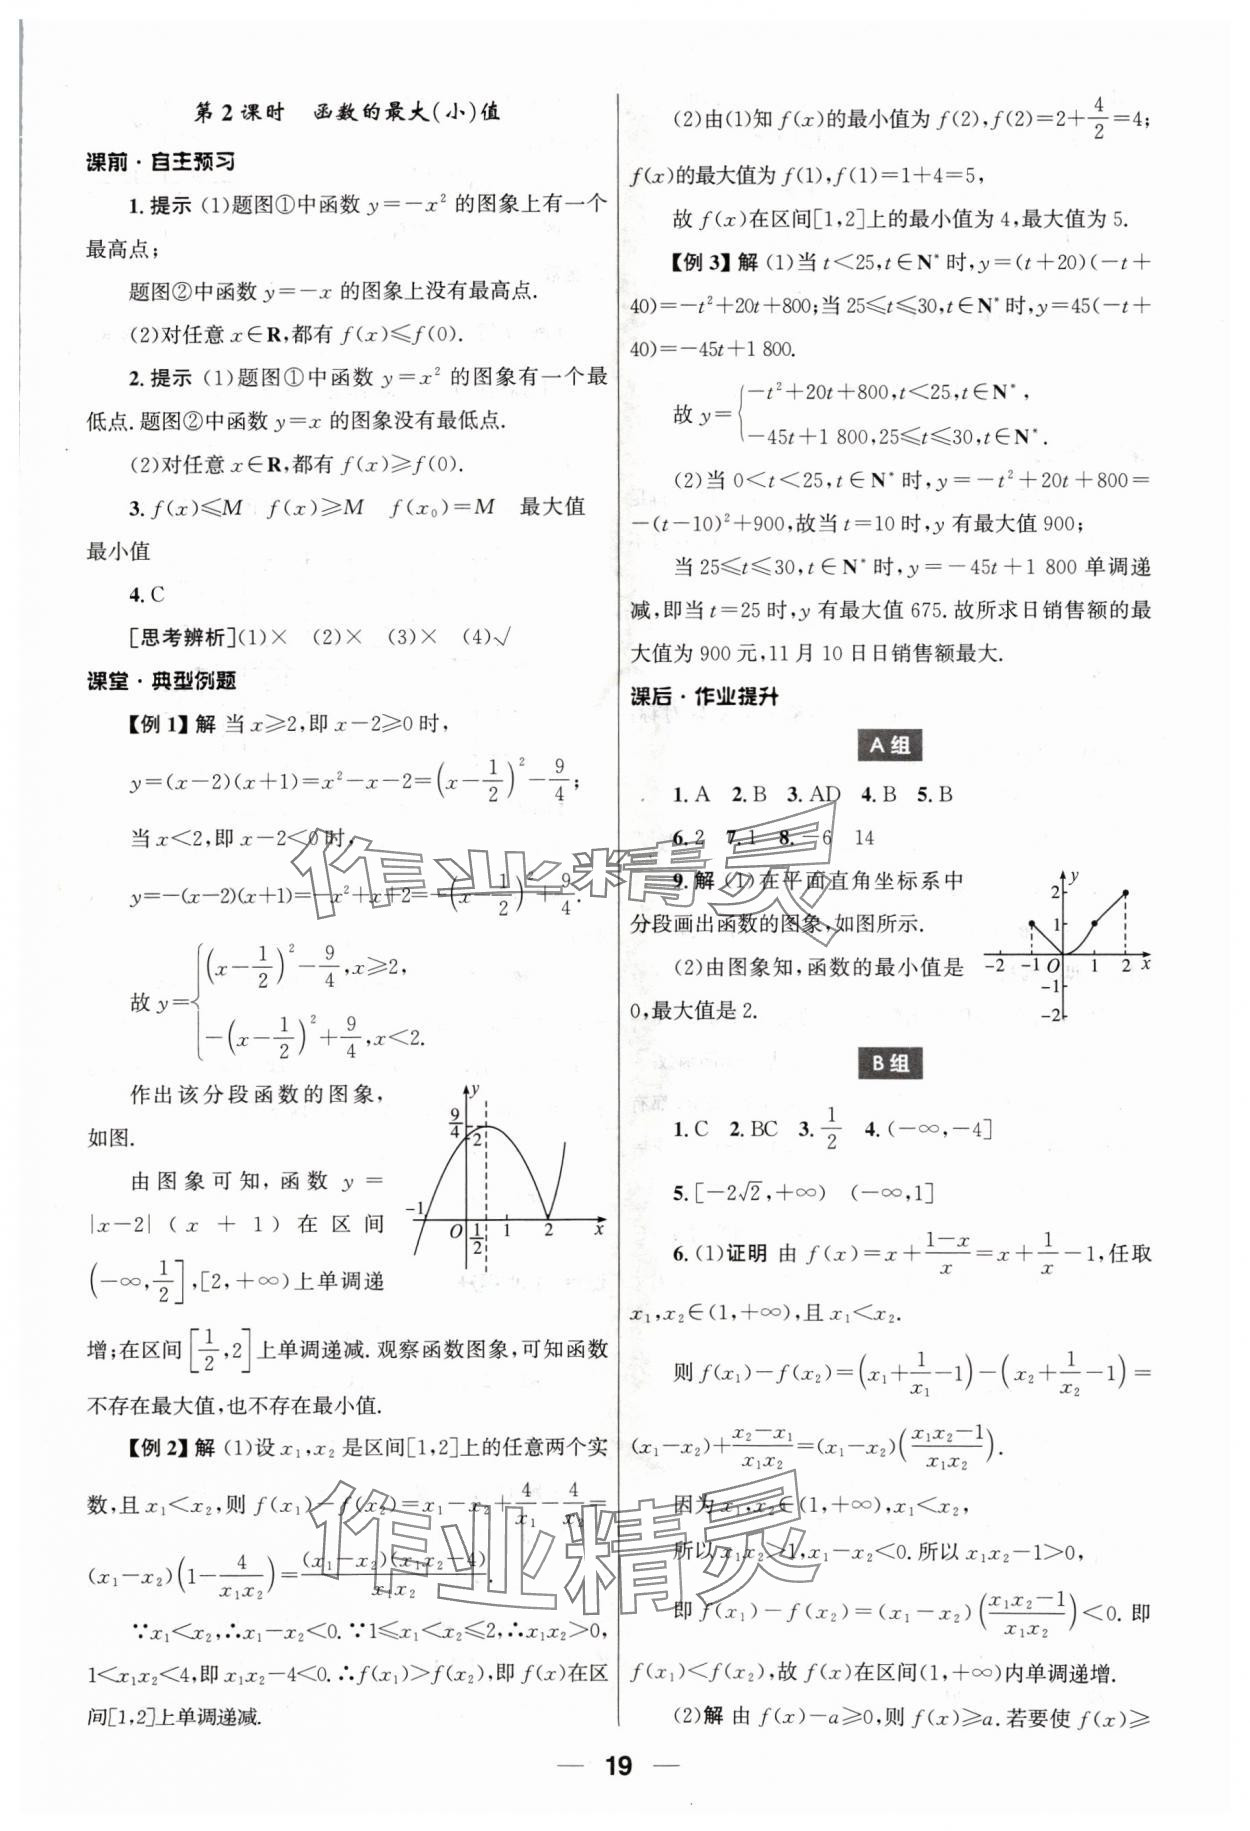 第2课时　函数的最大(小)值
课前·自主预习
1.提示 (1)题图①中函数 y=-x² 的图象上有一个
最高点;
题图②中函数 y=-x 的图象上没有最高点.
(2)对任意 x∈R,都有 f(x)≤f(0).
2.提示 (1)题图①中函数 y=x² 的图象有一个最
低点.题图②中函数 y=x 的图象没有最低点.
(2)对任意 x∈R,都有 f(x)≥f(0).
3. f(x)≤M　f(x)≥M　f(x₀)=M　最大值
最小值
4. C
[思考辨析](1)×　(2)×　(3)×　(4)√
课堂·典型例题
【例1】解 当 x≥2,即 x-2≥0 时,
y=(x-2)(x+1)=x²-x-2=(x-1/2)²-9/4;
当 x<2,即 x-2<0 时,
y=-(x-2)(x+1)=-x²+x+2=-(x-1/2)²+9/4.
故 y={(x-1/2)²-9/4,x≥2,
-(x-1/2)²+9/4,x<2.
作出该分段函数的图象,
如图.
由图象可知,函数 y=
|x-2|(x+1)在区间
(-∞,1/2],[2,+∞)上单调递
增;在区间[1/2,2]上单调递减.观察函数图象,可知函数
不存在最大值,也不存在最小值.
y
9/4
2
-1 O 1/2 1 2 x
【例2】解 (1)设 x₁,x₂ 是区间[1,2]上的任意两个实
数,且 x₁<x₂,则 f(x₁)-f(x₂)=x₁-x₂+4/x₁-4/x₂=
(x₁-x₂)(1-4/(x₁x₂))=(x₁-x₂)(x₁x₂-4)/(x₁x₂).
∵x₁<x₂,∴x₁-x₂<0.∵1≤x₁<x₂≤2,∴x₁x₂>0,
1<x₁x₂<4,即 x₁x₂-4<0.∴f(x₁)>f(x₂),即 f(x)在区
间[1,2]上单调递减.
(2)由(1)知 f(x)的最小值为 f(2),f(2)=2+4/2=4;
f(x)的最大值为 f(1),f(1)=1+4=5,
故 f(x)在区间[1,2]上的最小值为 4,最大值为 5.
【例3】解 (1)当 t<25,t∈N* 时,y=(t+20)(-t+
40)=-t²+20t+800;当 25≤t≤30,t∈N* 时,y=45(-t+
40)=-45t+1 800.
故 y={-t²+20t+800,t<25,t∈N*,
-45t+1 800,25≤t≤30,t∈N*.
(2)当 0<t<25,t∈N* 时,y=-t²+20t+800=
-(t-10)²+900,故当 t=10 时,y 有最大值 900;
当 25≤t≤30,t∈N* 时,y=-45t+1 800 单调递
减,即当 t=25 时,y 有最大值 675.故所求日销售额的最
大值为 900 元,11 月 10 日日销售额最大.
课后·作业提升
A组
1. A　2. B　3. AD　4. B　5. B
6. 2　7. 1　8. -6　14
9.解 (1)在平面直角坐标系中
分段画出函数的图象,如图所示.
(2)由图象知,函数的最小值是
0,最大值是 2.
y
2
1
-2 -1 O 1 2 x
-1
-2
B组
1. C　2. BC　3. 1/2　4. (-∞,-4]
5. [-2√2,+∞)　(-∞,1]
6. (1)证明 由 f(x)=x+(1-x)/x=x+1/x-1,任取
x₁,x₂∈(1,+∞),且 x₁<x₂.
则 f(x₁)-f(x₂)=(x₁+1/x₁-1)-(x₂+1/x₂-1)=
(x₁-x₂)+(x₂-x₁)/(x₁x₂)=(x₁-x₂)((x₁x₂-1)/(x₁x₂)).
因为 x₁,x₂∈(1,+∞),x₁<x₂,
所以 x₁x₂>1,x₁-x₂<0.所以 x₁x₂-1>0,
即 f(x₁)-f(x₂)=(x₁-x₂)((x₁x₂-1)/(x₁x₂))<0.即
f(x₁)<f(x₂),故 f(x)在区间(1,+∞)内单调递增.
(2)解 由 f(x)-a≥0,则 f(x)≥a.若要使 f(x)≥
作业精灵
作业精灵
19